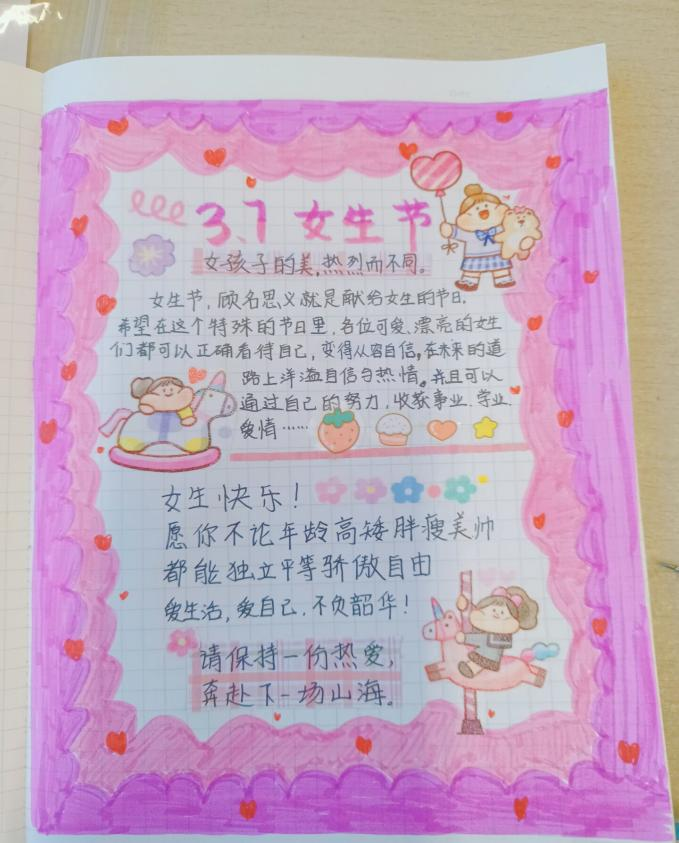 3.7 女生节
女孩子的美,热烈而不同。
女生节,顾名思义就是献给女生的节日,
希望在这个特殊的节日里,各位可爱、漂亮的女生
们都可以正确看待自己,变得从容自信,在未来的道
路上洋溢自信与热情。并且可以
通过自己的努力,收获事业、学业、
爱情……
女生快乐!
愿你不论年龄高矮胖瘦美帅
都能独立平等骄傲自由
爱生活,爱自己,不负韶华!
请保持一份热爱,
奔赴下一场山海。